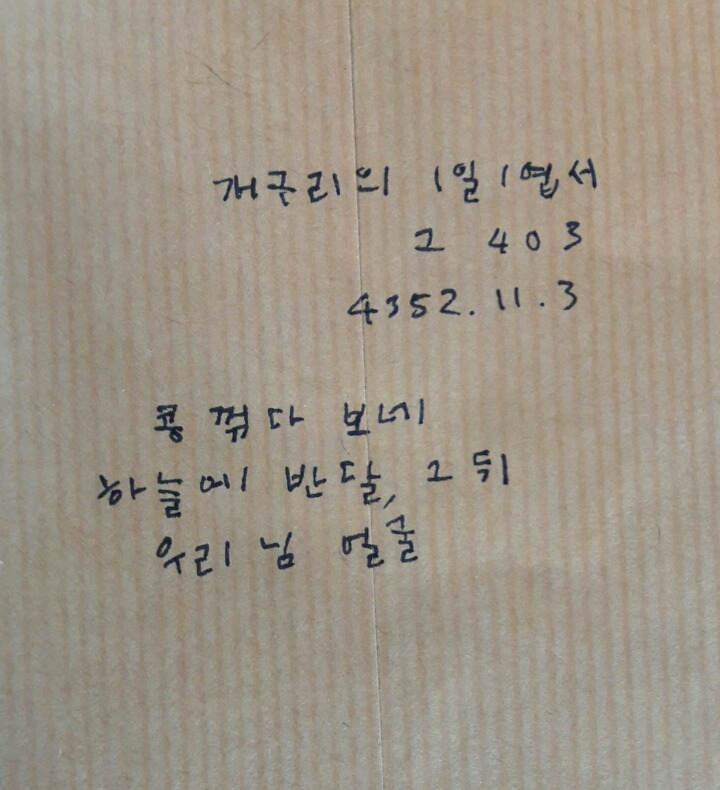 개구리의 1일1엽서
그 403
4352.11.3
콩 꺾다 보네
하늘에 반달, 그 뒤
우리님 얼굴